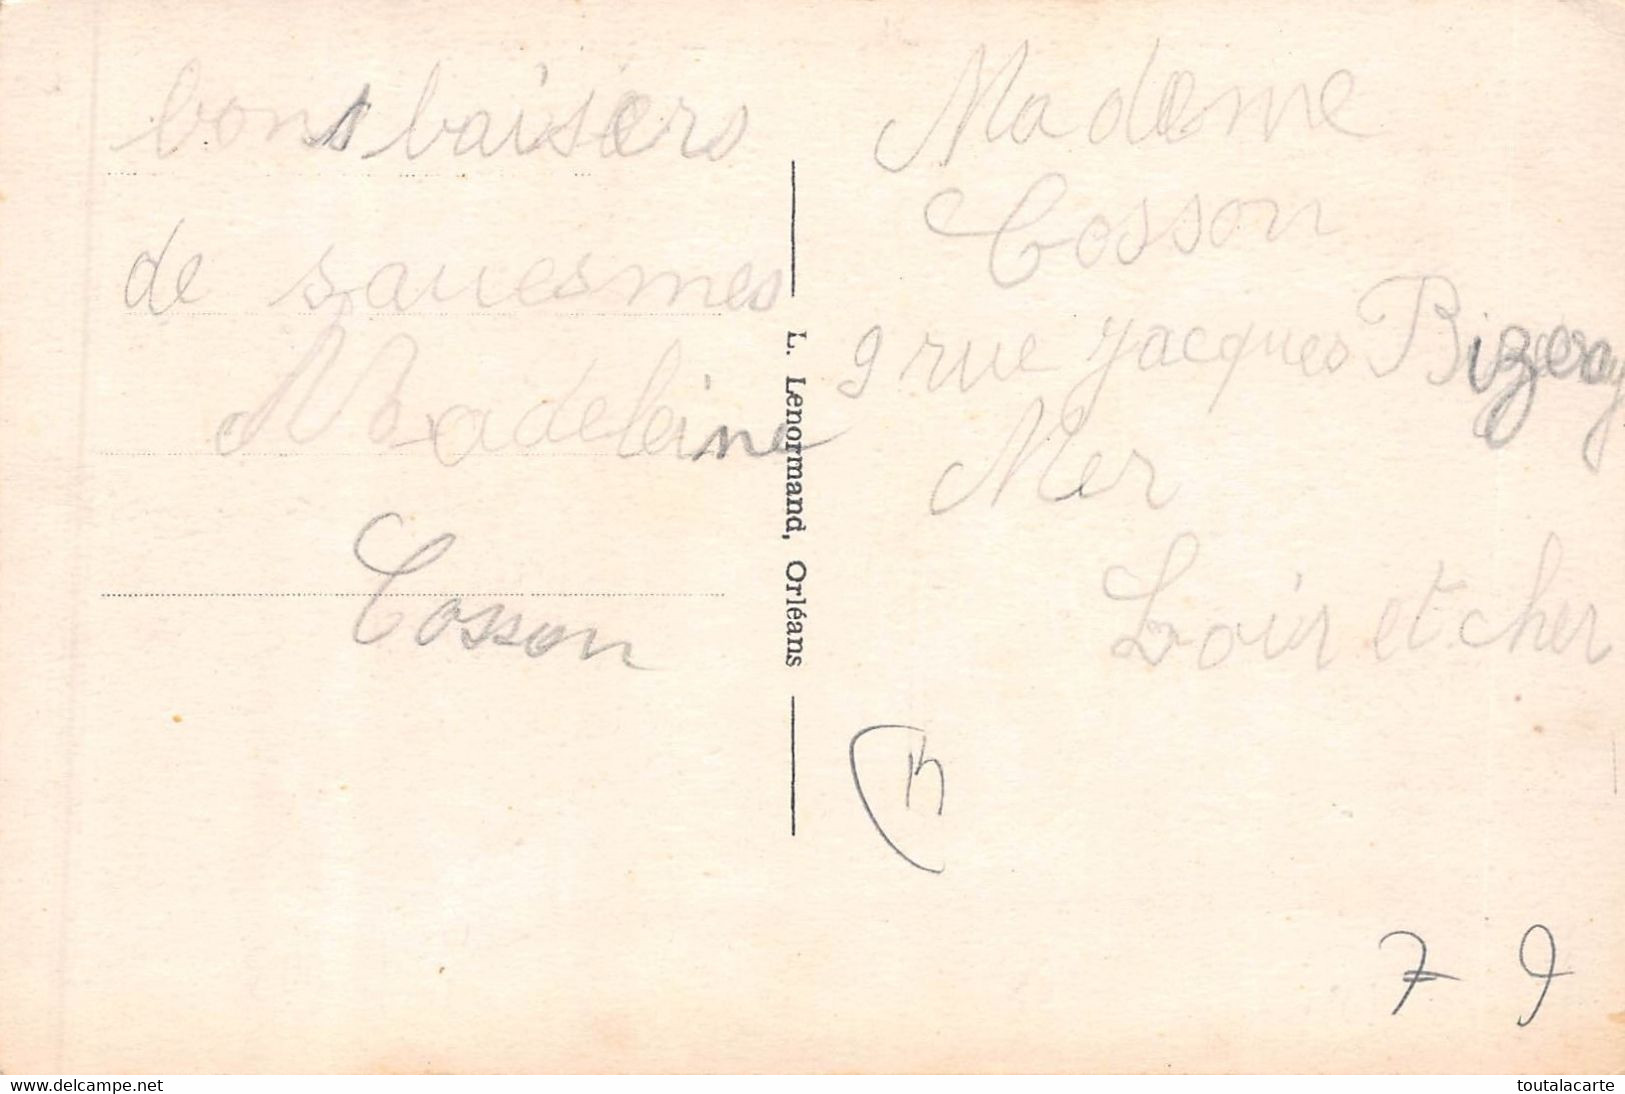 bons baisers
de sauesmes
Madeleine
Cosson
L. Lenormand, Orléans
Madame
Cosson
9 rue Jacques Bizeray
Mer
Loir et cher
7 9
www.delcampe.net
toutalacarte